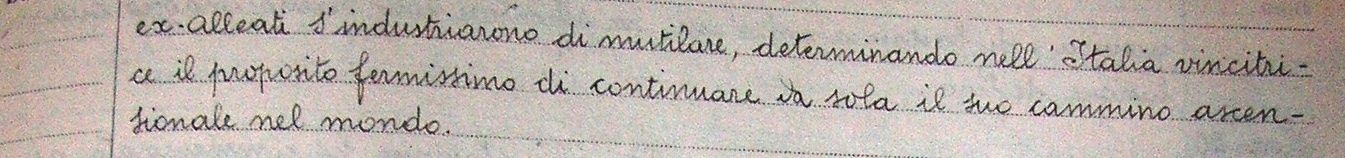 ex-alleati s'industriarono di mutilare, determinando nell'Italia vincitri-
ce il proposito fermissimo di continuare da sola il suo cammino ascen-
sionale nel mondo.